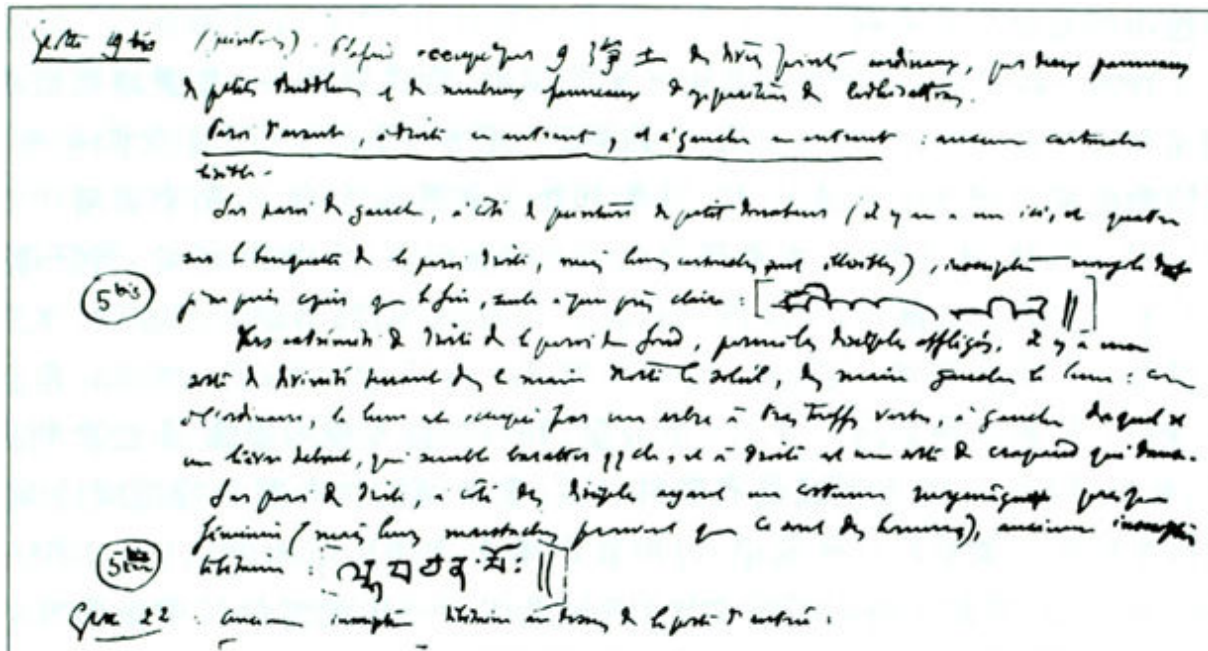 Grotte 19 bis (peintures). Plafond occupé par
de petits Buddhas et de nombreux panneaux d'apparition de bodhisattvas.
Paroi d'avant, à droite en entrant, et à gauche en entrant : aucun cartouche
lisible.
Sur paroi de gauche, à côté de peintures de petits donateurs (il y en a un ici, et quatre
sur la banquette de la paroi droite, mais leurs cartouches sont illisibles), inscription
5 bis
je ne puis copier que la fin, seule à peu près claire : [
Vers extrémité de droite de la paroi du fond, parmi les disciples affligés, il y a une
sorte de divinité tenant dans la main droite le soleil, dans main gauche la lune : comme
à l'ordinaire, la lune est occupée par un arbre à trois touffes vertes, à gauche duquel est
un lièvre debout, qui semble baratter qq ch., et à droite est une sorte de crapaud qui danse.
Sur paroi de droite, à côté des disciples ayant un costume presque
féminin (mais leurs moustaches prouvent que ce sont des hommes), ancienne inscription
tibétaine :
5 ter
Grotte 22 : ancienne inscription tibétaine au dessus de la porte d'entrée :